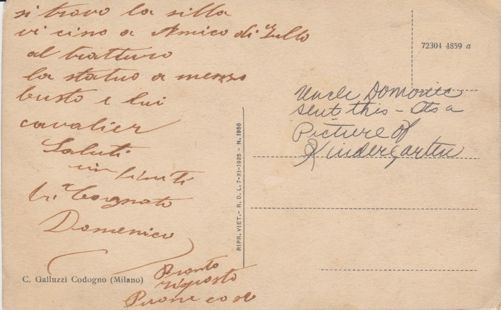 si trovo la silla
vi cino a Amico di Zullo
al tratturo
la statuo a menzo
busto e lui
cavalier
Saluti
infiniti
Cognato
Domenico
Pronto
risposto
C. Galluzzi Codogno (Milano)
RIPR. VIET. - R. D. L. 7-11-1925 - N. 1950
72304 4859 a
Uncle Domonic
sent this - Its a
Picture of
Kindergarten